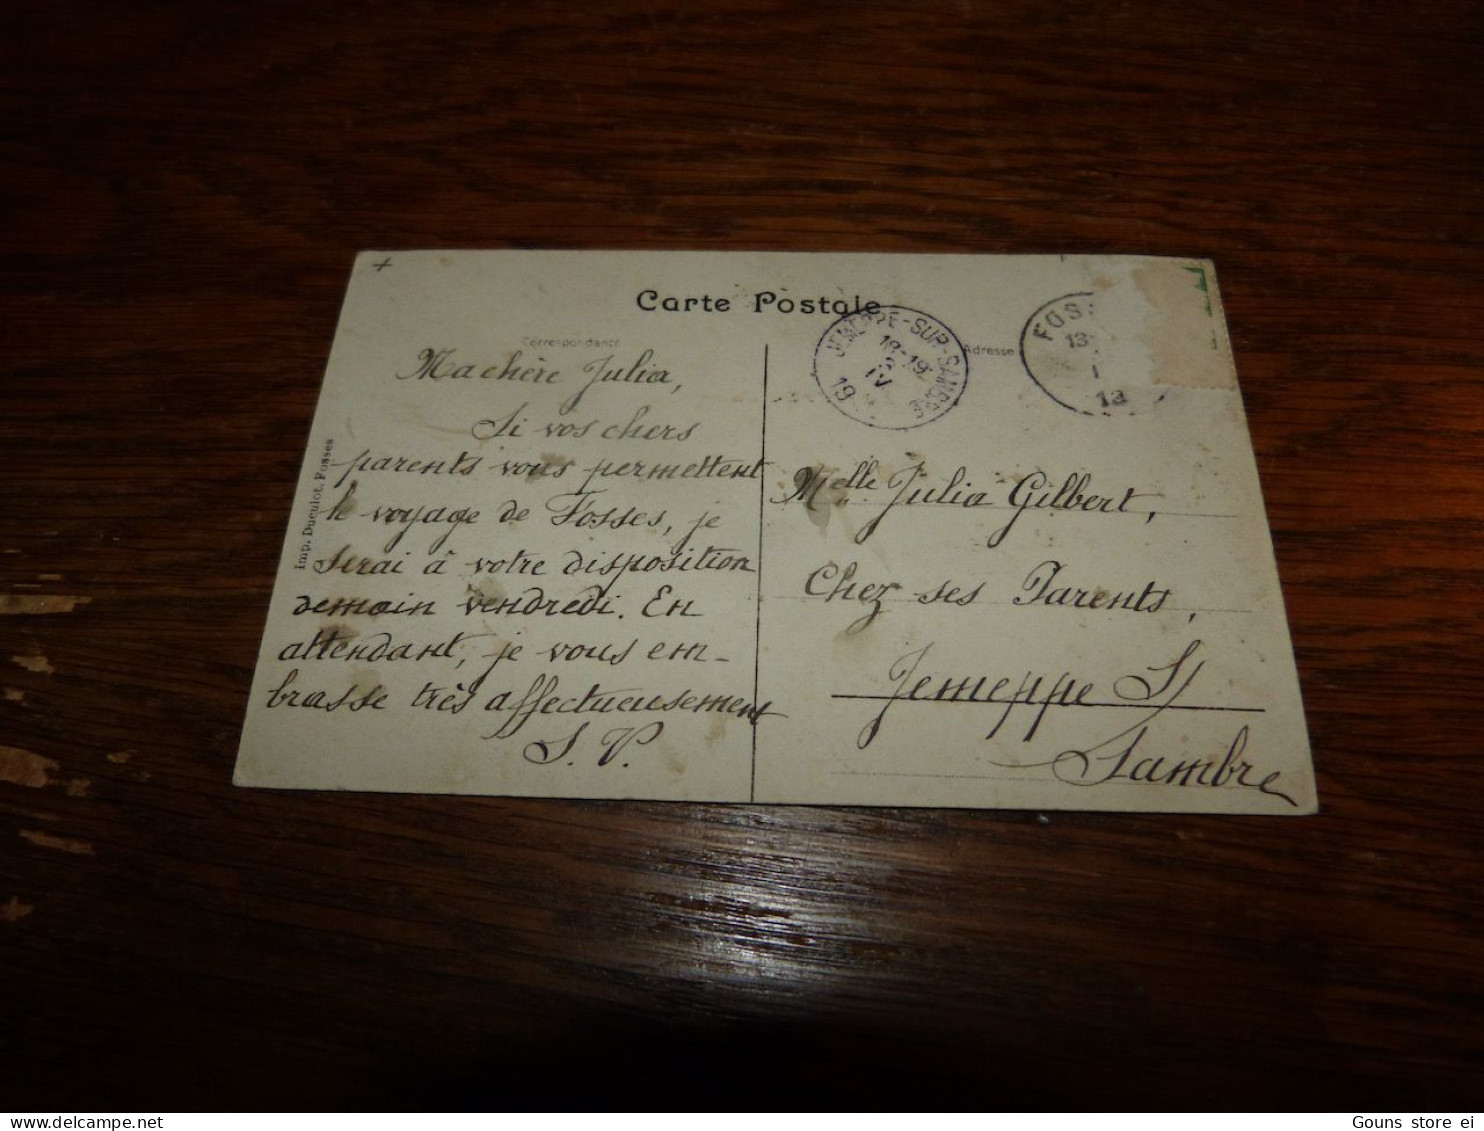 Carte Postale
Correspondance
Adresse
JEMEPPE-SUR-SAMBRE
18-19
IV
19
FOS
13-
1
12
Ma chère Julia,
Si vos chers
parents vous permettent
le voyage de Fosses, je
serai à votre disposition
demain vendredi. En
attendant, je vous em-
brasse très affectueusement
S. V.
Imp. Duculot, Fosses
Melle Julia Gilbert,
Chez ses Parents,
Jemeppe S/
Sambre
Gouns store ei